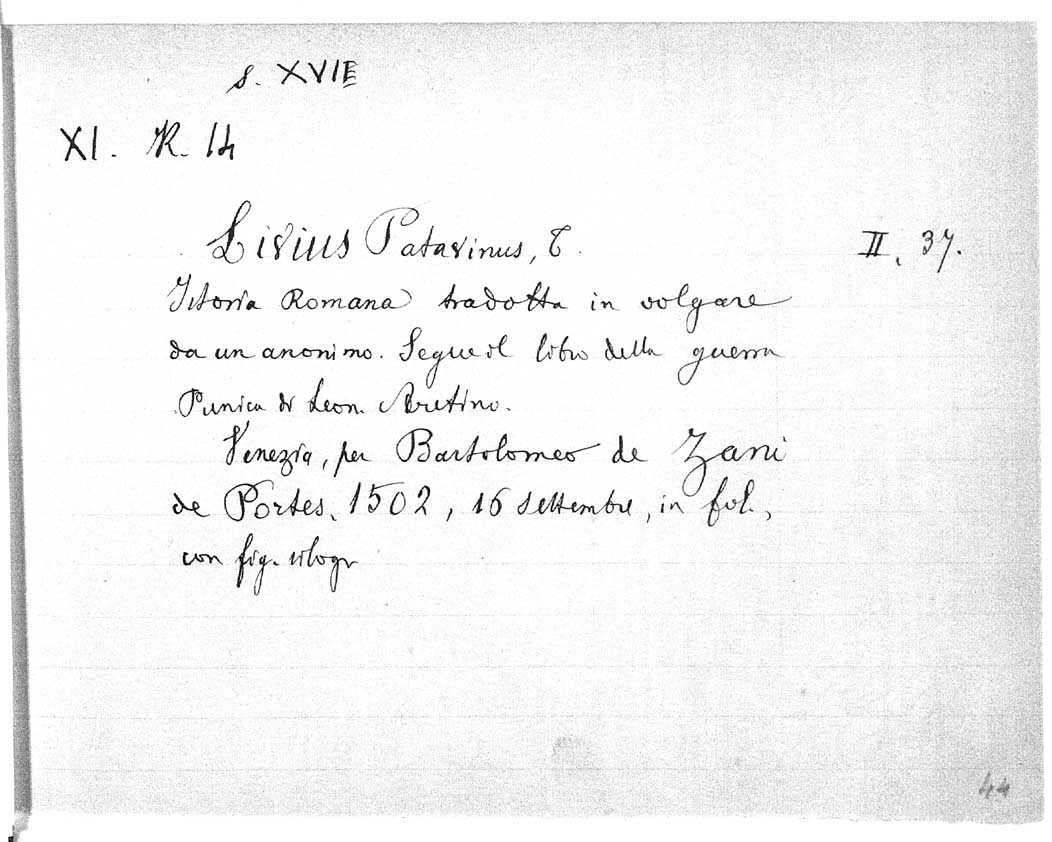 S. XVI E
XI. R. 14
Livius Patavinus, T.
II, 37.
Istoria Romana tradotta in volgare
da un anonimo. Segue il libro della guerra
Punica di Leon. Aretino.
Venezia, per Bartolomeo de Zani
de Portes, 1502, 16 settembre, in fol.,
con fig. silogr
44